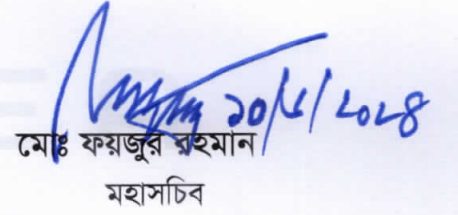 ২০/৫/২০২৪
মোঃ ফয়জুর রহমান
মহাসচিব